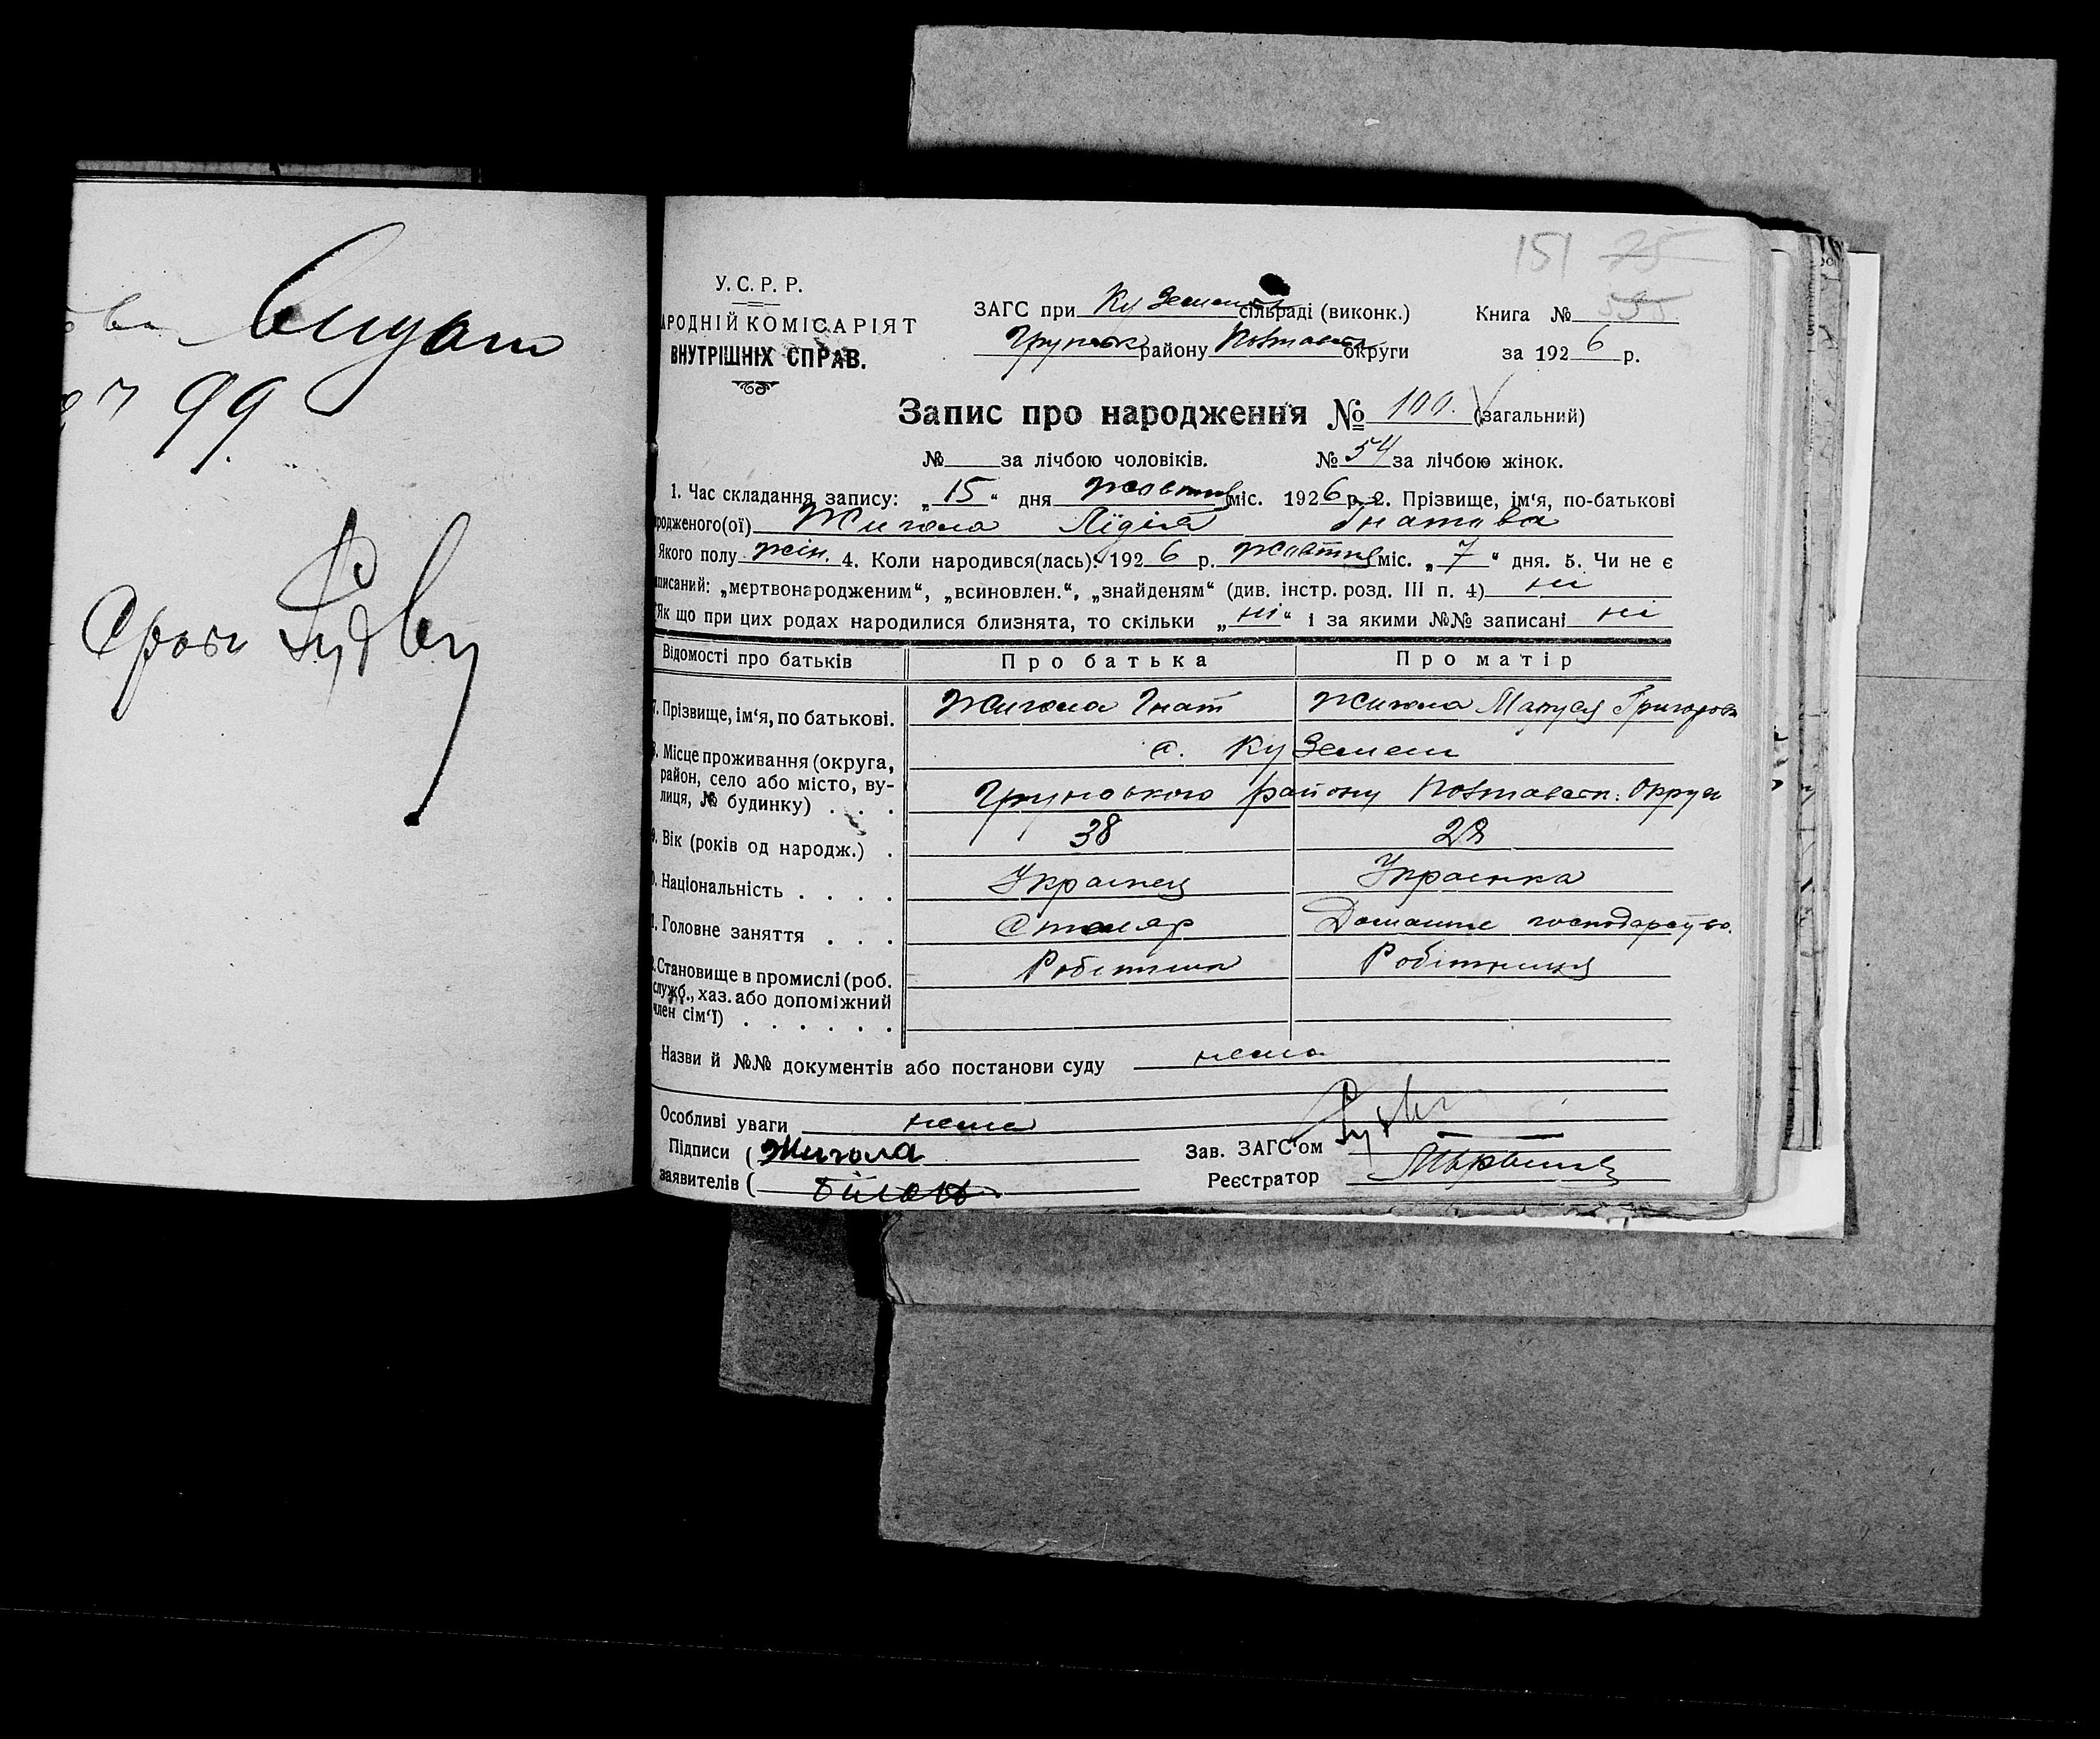 видано
99.
151 75
У. С. Р. Р.
АРОДНІЙ КОМІСАРІЯТ
ВНУТРІШНІХ СПРАВ.
ЗАГС при Ку Земенсь сільраді (виконк.) Книга №
Грунськ району Полтавськ округи за 1926 р.
Запис про народження № 100. (загальний)
№ за лічбою чоловіків. № 54 за лічбою жінок.
1. Час складання запису: „15“ дня жовтня міс. 1926 р. 2. Прізвище, ім‘я, по-батькові
родженого(ої) Жигола Лідія Гнатова
Якого полу жін. 4. Коли народився(лась): 1926 р. жовтня міс. „7“ дня. 5. Чи не є
писаний: „мертвонародженим“, „всиновлен.“, „знайденям“ (див. інстр. розд. III п. 4) ні
Як що при цих родах народилися близнята, то скільки „ні“ і за якими №№ записані ні
Відомості про батьків Про батька Про матір
7. Прізвище, ім‘я, по батькові. Жигола Гнат Жигола Маруся Григоров
8. Місце проживання (округа, район, село або місто, вулиця, № будинку) . . . с. Ку Земен
Грунського району Полтавськ. Округи
9. Вік (років од народж.) . 38 28
0. Національність . . . . Українец Українка
1. Головне заняття . . . Столяр Домашнє господарство.
Становище в промислі (роб. Робітник Робітниця
служб., хаз. або допоміжний
член сім‘ї) . . . . . .
Назви й №№ документів або постанови суду нема
Особливі уваги нема
Підписи ( Жигола Зав. ЗАГС‘ом
заявителів ( Білоус Реєстратор